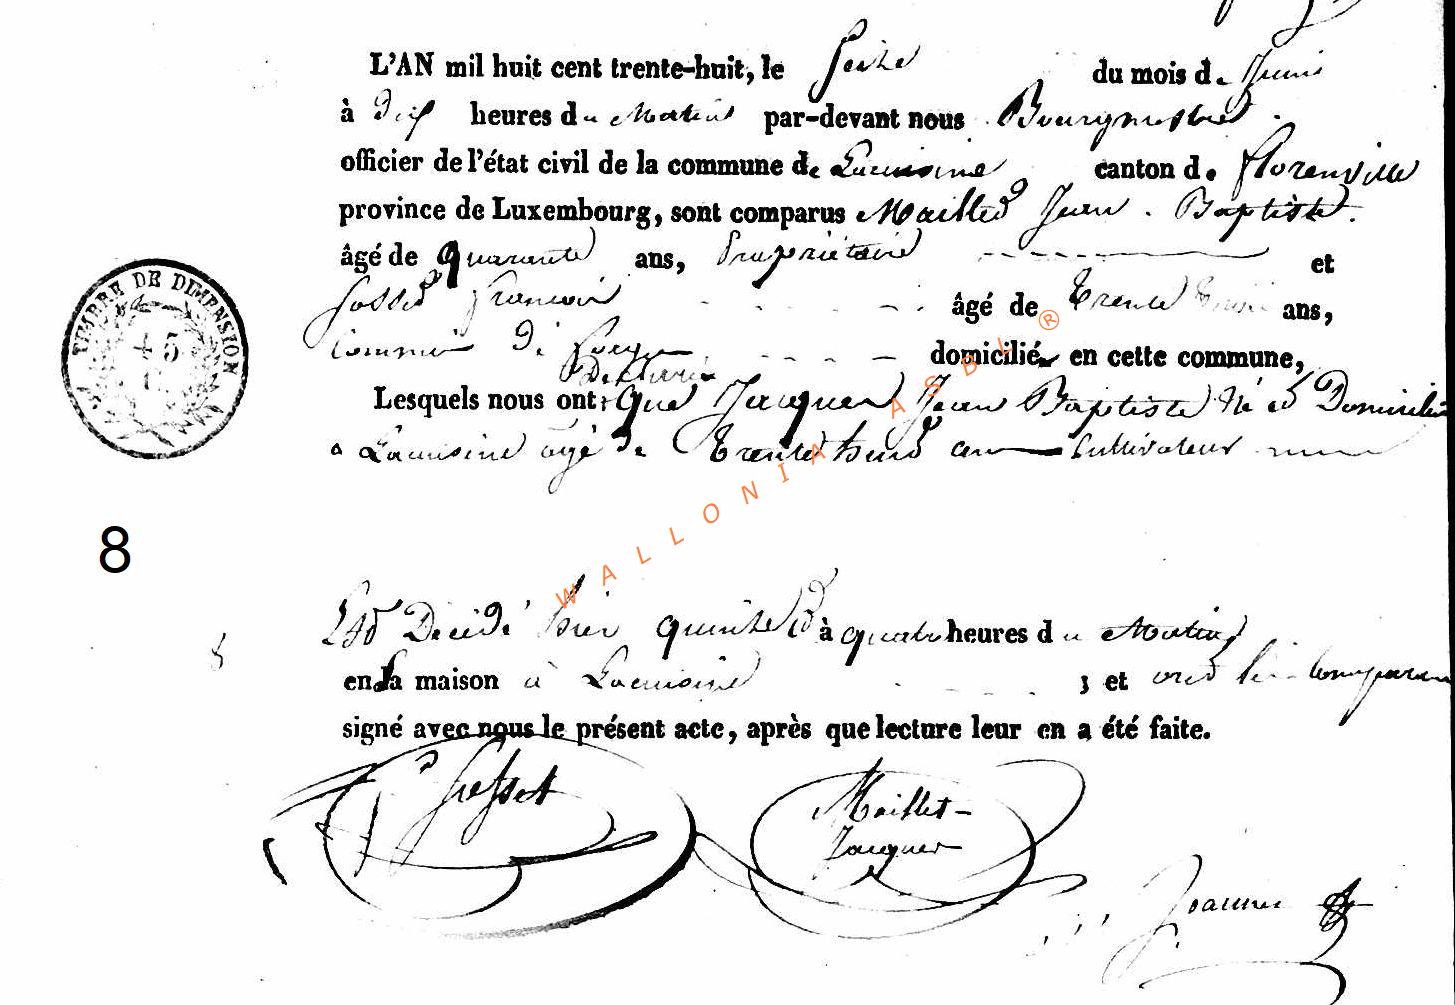 L'AN mil huit cent trente-huit, le Seize du mois de Juin
à Dix heures du Matin par-devant nous Bourgmestre
officier de l'état civil de la commune de Lacuisine canton de Florenville
province de Luxembourg, sont comparus Maillet Jean Baptiste
âgé de quarante ans, Propriétaire et
Gosset François âgé de trente trois ans,
Commis de domiciliés en cette commune,
Déclaré
Lesquels nous ont que Jacques Jean Baptiste Né et Domicilié
a Lacuisine agé de Trente huit ans Cultivateur
8
Est Décédé hier quinze à quatre heures du Matin
en sa maison à Lacuisine ; et ont les Comparants
signé avec nous le présent acte, après que lecture leur en a été faite.
Gosset
Maillet-
Jacques
Joannes
TIMBRE DE DIMENSION
45
WALLONIA ASBL ®